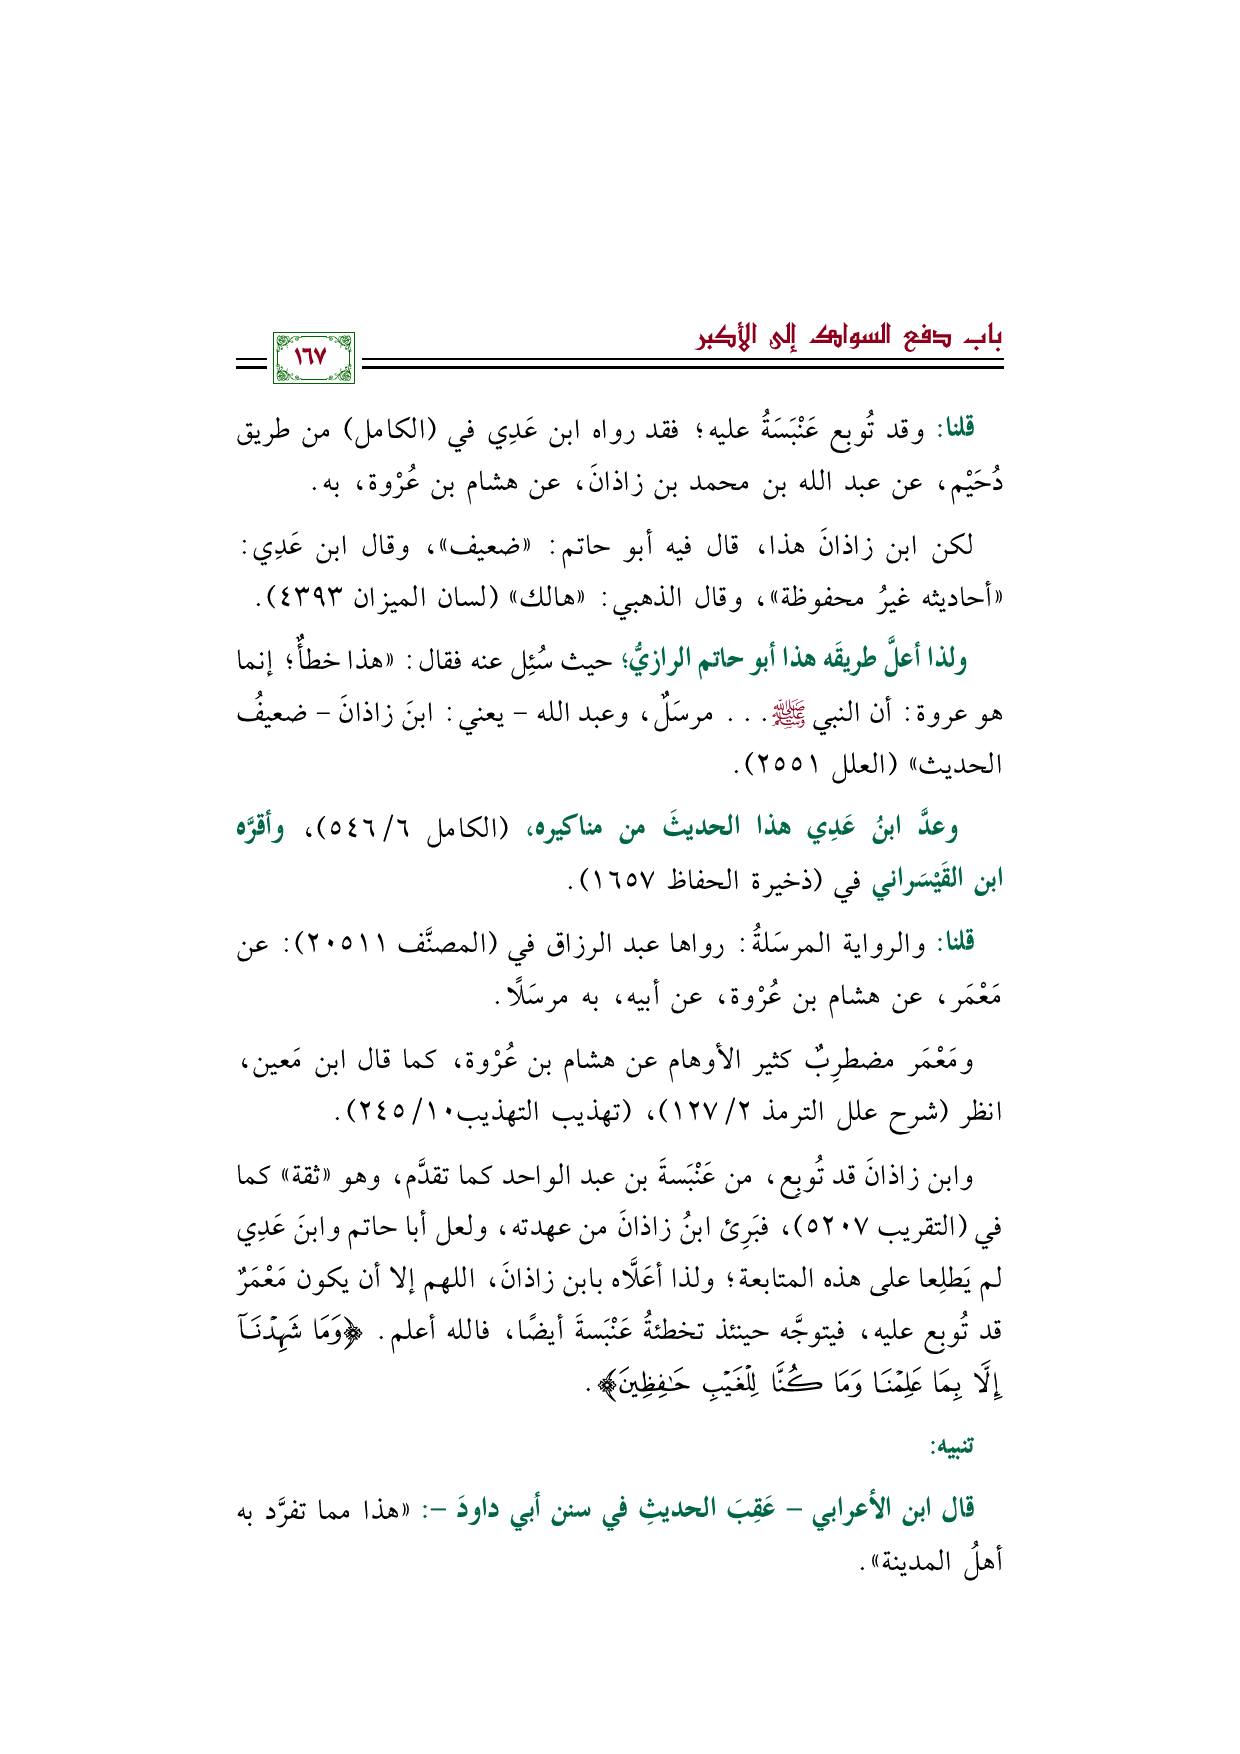 باب دفع السواك إلى الأكبر
١٦٧
قلنا: وقد تُوبِع عَنْبَسَةُ عليه؛ فقد رواه ابن عَدِي في (الكامل) من طريق
دُحَيْم، عن عبد الله بن محمد بن زاذانَ، عن هشام بن عُرْوة، به.
لكن ابن زاذانَ هذا، قال فيه أبو حاتم: «ضعيف»، وقال ابن عَدِي:
«أحاديثه غيرُ محفوظة»، وقال الذهبي: «هالك» (لسان الميزان ٤٣٩٣).
ولذا أعلَّ طريقَه هذا أبو حاتم الرازيُّ؛ حيث سُئِل عنه فقال: «هذا خطأٌ؛ إنما
هو عروة: أن النبي ﷺ. . . مرسَلٌ، وعبد الله - يعني: ابنَ زاذانَ - ضعيفُ
الحديث» (العلل ٢٥٥١).
وعدَّ ابنُ عَدِي هذا الحديثَ من مناكيره، (الكامل ٦/ ٥٤٦)، وأقرَّه
ابن القَيْسَراني في (ذخيرة الحفاظ ١٦٥٧).
قلنا: والرواية المرسَلةُ: رواها عبد الرزاق في (المصنَّف ٢٠٥١١): عن
مَعْمَر، عن هشام بن عُرْوة، عن أبيه، به مرسَلًا.
ومَعْمَر مضطرِبٌ كثير الأوهام عن هشام بن عُرْوة، كما قال ابن مَعين،
انظر (شرح علل الترمذ ٢/ ١٢٧)، (تهذيب التهذيب١٠/ ٢٤٥).
وابن زاذانَ قد تُوبِع، من عَنْبَسةَ بن عبد الواحد كما تقدَّم، وهو «ثقة» كما
في (التقريب ٥٢٠٧)، فبَرِئ ابنُ زاذانَ من عهدته، ولعل أبا حاتم وابنَ عَدِي
لم يَطلِعا على هذه المتابعة؛ ولذا أعَلَّاه بابن زاذانَ، اللهم إلا أن يكون مَعْمَرٌ
قد تُوبع عليه، فيتوجَّه حينئذ تخطئةُ عَنْبَسةَ أيضًا، فالله أعلم. ﴿وَمَا شَهِدۡنَآ
إِلَّا بِمَا عَلِمۡنَا وَمَا كُنَّا لِلۡغَيۡبِ حَٰفِظِينَ﴾.
تنبيه:
قال ابن الأعرابي - عَقِبَ الحديثِ في سنن أبي داودَ -: «هذا مما تفرَّد به
أهلُ المدينة».